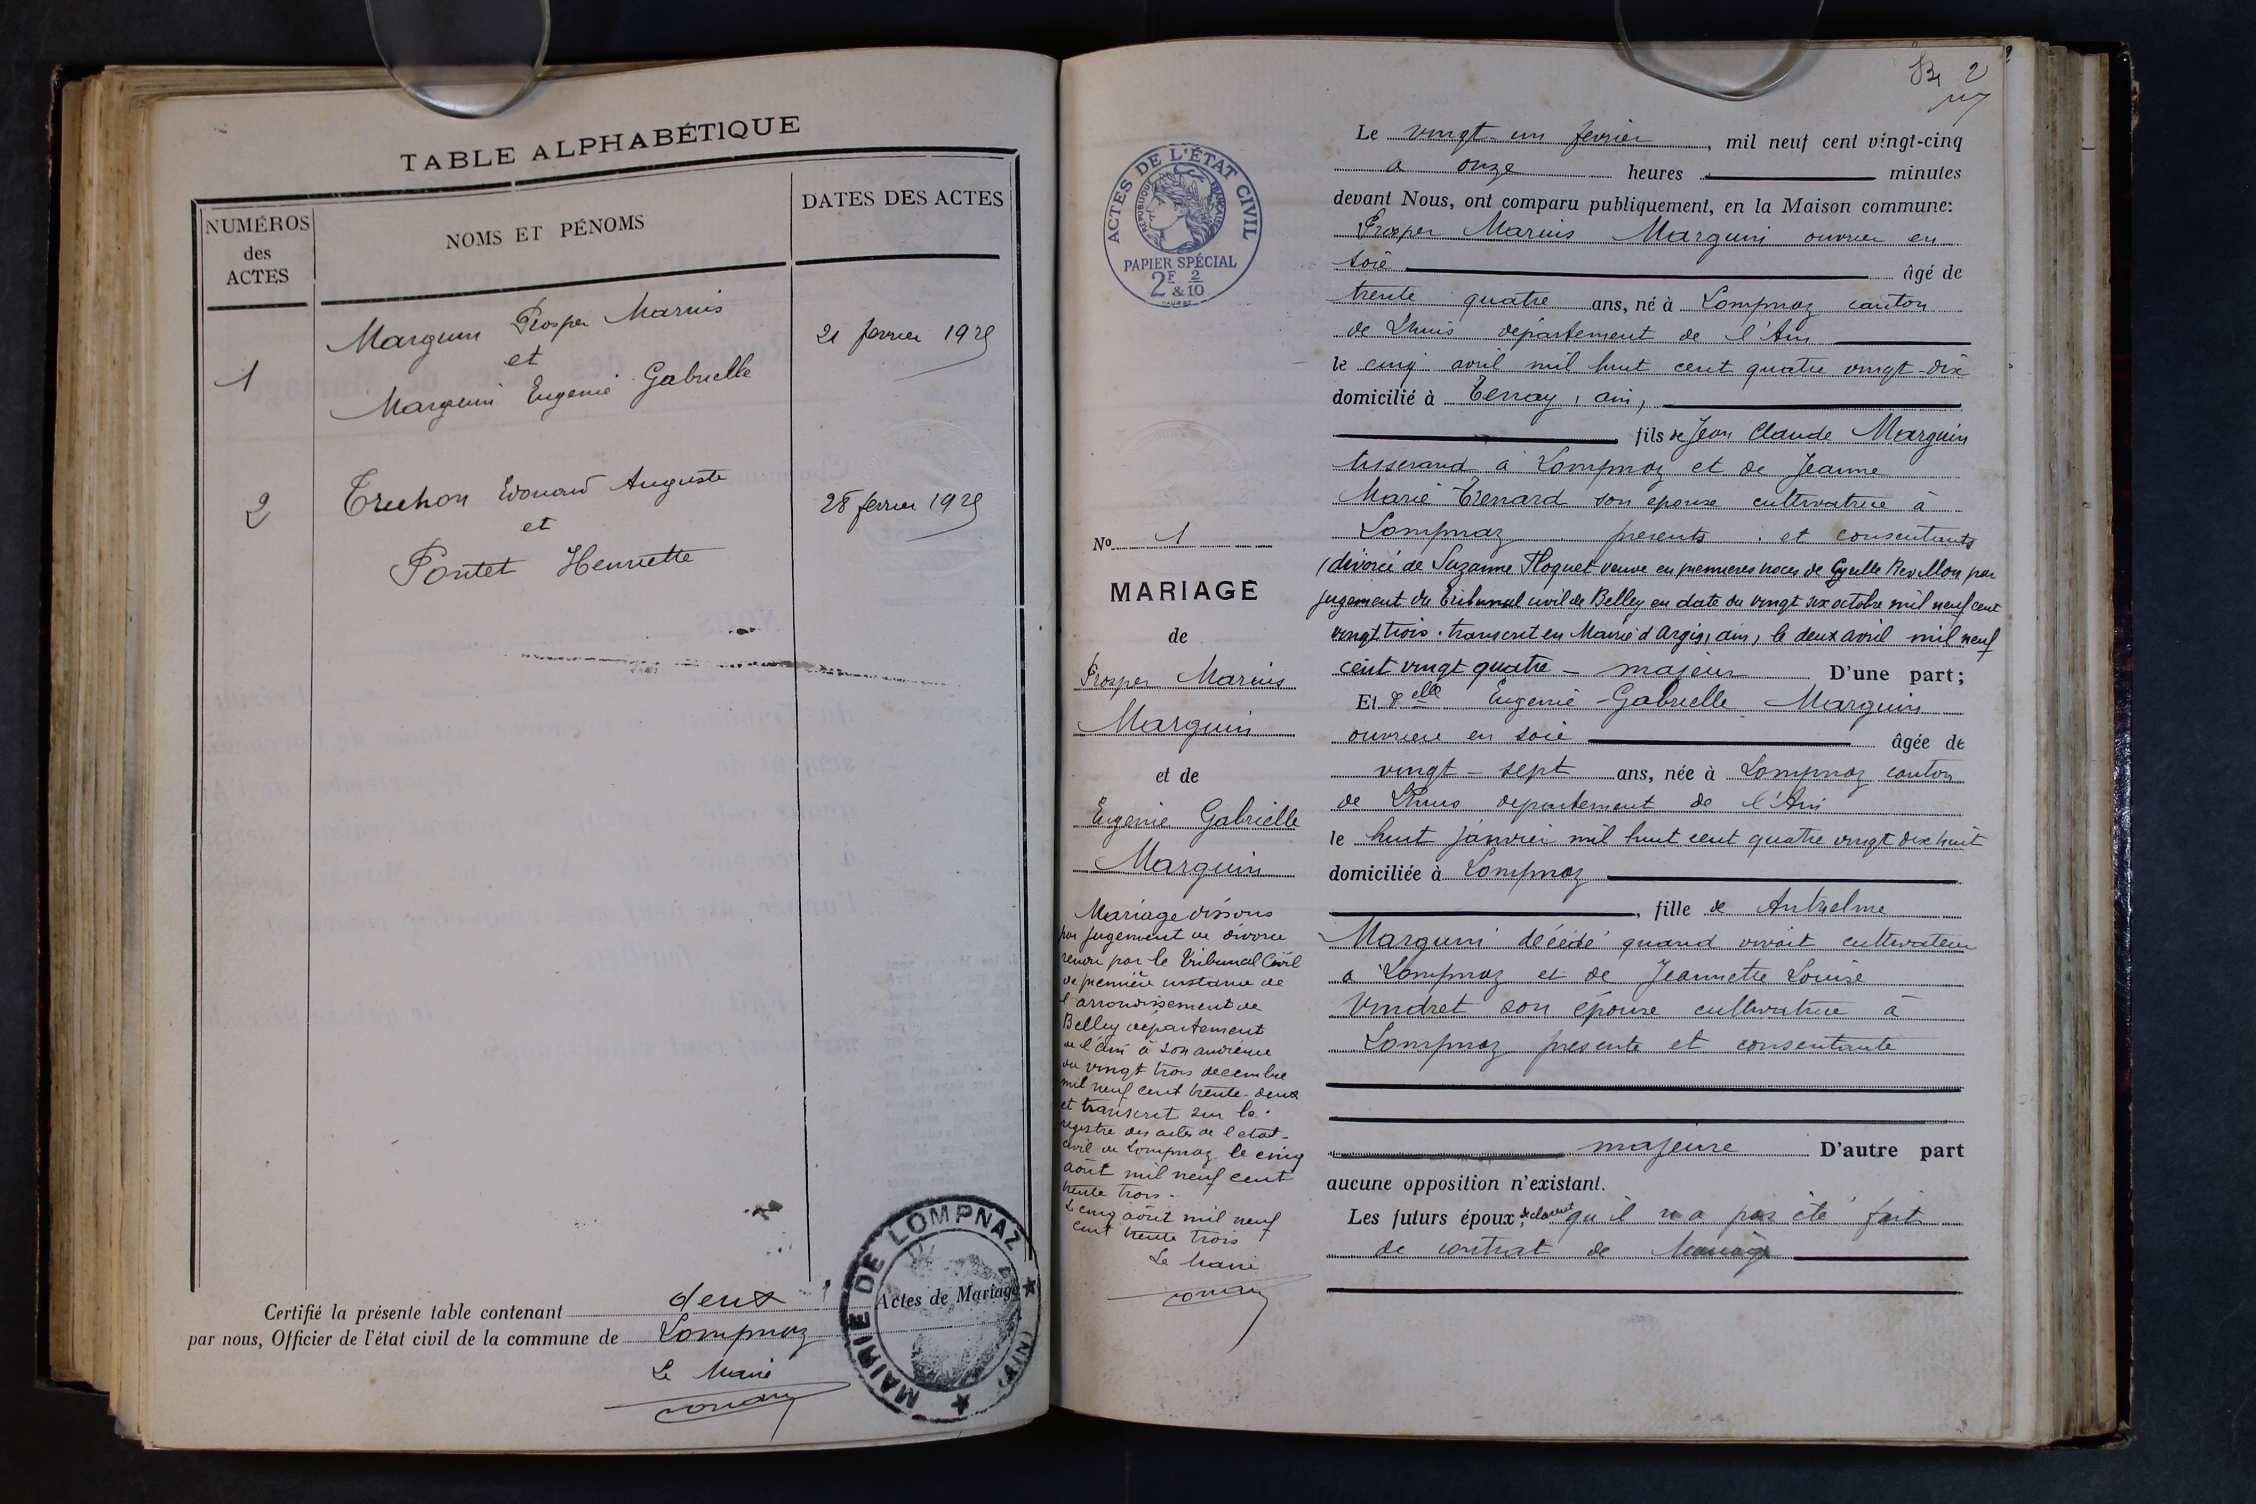 TABLE ALPHABÉTIQUE
NUMÉROS des ACTES
NOMS ET PÉNOMS
DATES DES ACTES
1
Marguin Prosper Marius
et
Marguin Eugenie Gabrielle
21 fevrier 1925
2
Truchon Edouard Auguste
et
Pontet Henriette
28 fevrier 1925
Certifié la présente table contenant deux Actes de Mariage
par nous, Officier de l'état civil de la commune de Lompnaz
Le Maire
MAIRIE DE LOMPNAZ (AIN)
2
ACTES DE L'ÉTAT CIVIL
RÉPUBLIQUE FRANÇAISE
PAPIER SPÉCIAL
2F & 2/10
No 1
MARIAGE
de
Prosper Marius
Marguin
et de
Eugenie Gabrielle
Marguin
Mariage dissous
par jugement de divorce
rendu par le Tribunal Civil
de première instance de
l'arrondissement de
Belley département
de l'ain à son audience
du vingt trois decembre
mil neuf cent trente-deux
et transcrit sur le
registre des actes de l'etat-
civil de Lompnaz le cinq
août mil neuf cent
trente trois.
Le cinq août mil neuf
cent trente trois
Le Maire
Le vingt-un fevrier, mil neuf cent vingt-cinq
a onze heures minutes
devant Nous, ont comparu publiquement, en la Maison commune:
Prosper Marius Marguin ouvrier en
soie âgé de
trente quatre ans, né à Lompnaz canton
de Lhuis département de l'Ain
le cinq avril mil huit cent quatre vingt-dix
domicilié à Tenay, ain,
fils de Jean Claude Marguin
tisserand à Lompnaz et de Jeanne
Marie Trenard son epouse cultivatrice à
Lompnaz presents et consentants
(divorcé de Suzanne Floquet veuve en premieres noces de par
jugement du Tribunal civil de Belley en date du vingt six octobre mil neuf cent
vingt trois. transcrit en Mairie d'Argis, ain, le deux avril mil neuf
cent vingt quatre - majeur D'une part;
Et delle Eugenie-Gabrielle Marguin
ouvriere en soie âgée de
vingt-sept ans, née à Lompnaz canton
de Lhuis departement de l'Ain
le huit janvier mil huit cent quatre vingt dix huit
domiciliée à Lompnaz
, fille de Anthelme
Marguin décédé quand vivait cultivateur
a Lompnaz et de Jeannette Louise
Vindret son épouse cultivatrice à
Lompnaz presente et consentante
majeure D'autre part
aucune opposition n'existant.
Les futurs époux declarent qu'il n'a pas été fait
de contrat de Mariage